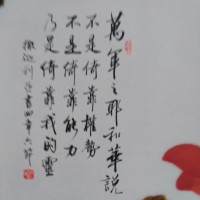 萬軍之耶和華說
不是倚靠權勢
不是倚靠能力
乃是倚靠我的靈
撒迦利亞書四章六節